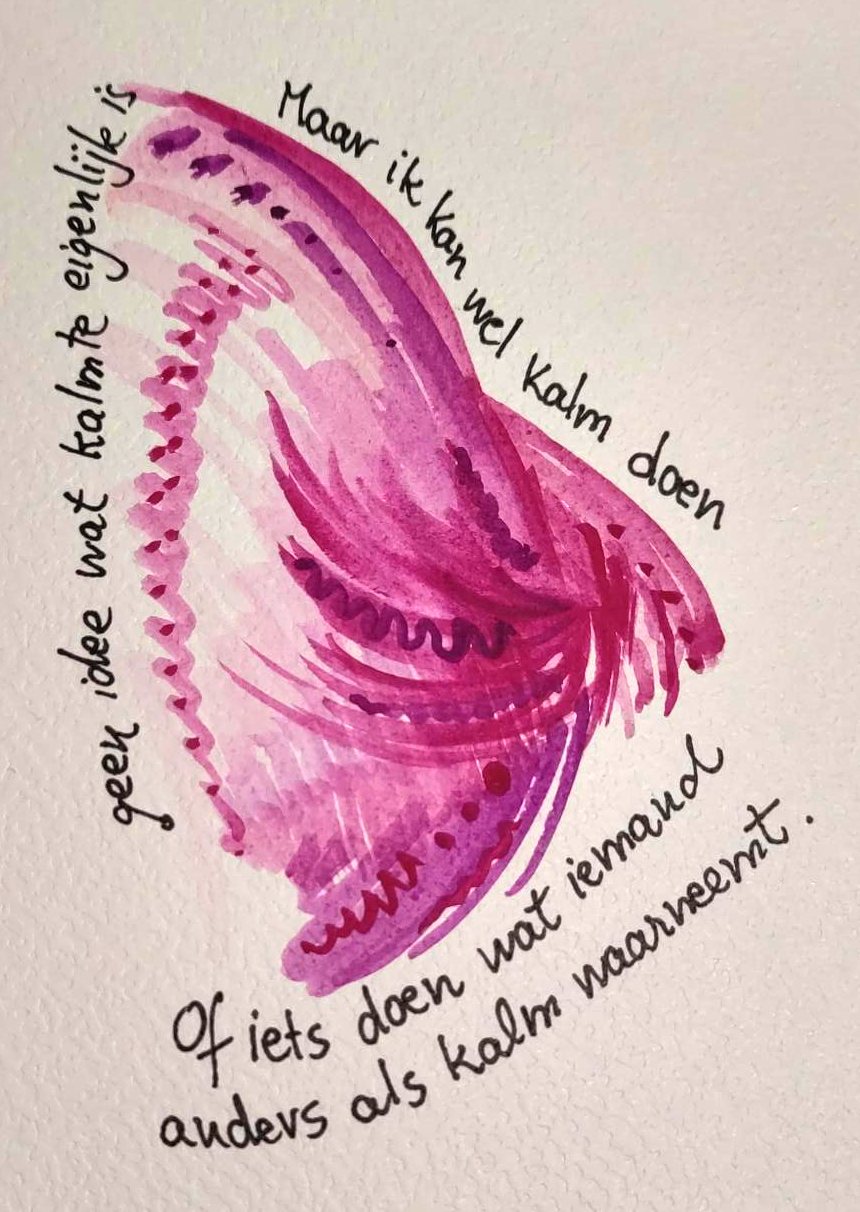 geen idee wat kalmte eigenlijk is
Maar ik kan wel kalm doen
Of iets doen wat iemand
anders als kalm waarneemt.